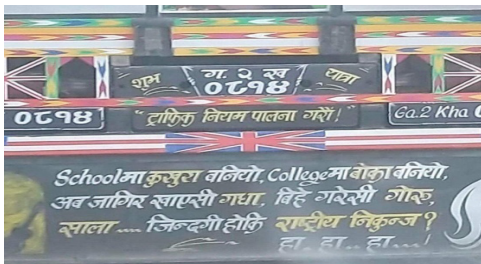 शुभ ग. २ ख यात्रा
०८१४
०८१४ "ट्राफिक नियम पालना गरौं!" Ga.2 Kha
Schoolमा कुखुरा बनियो, Collegeमा बोका बनियो,
अब जागिर खाएसी गधा, बिहे गरेसी गोरु,
साला .... जिन्दगी होकि राष्ट्रीय निकुन्ज ?
हा.. हा.. हा...!